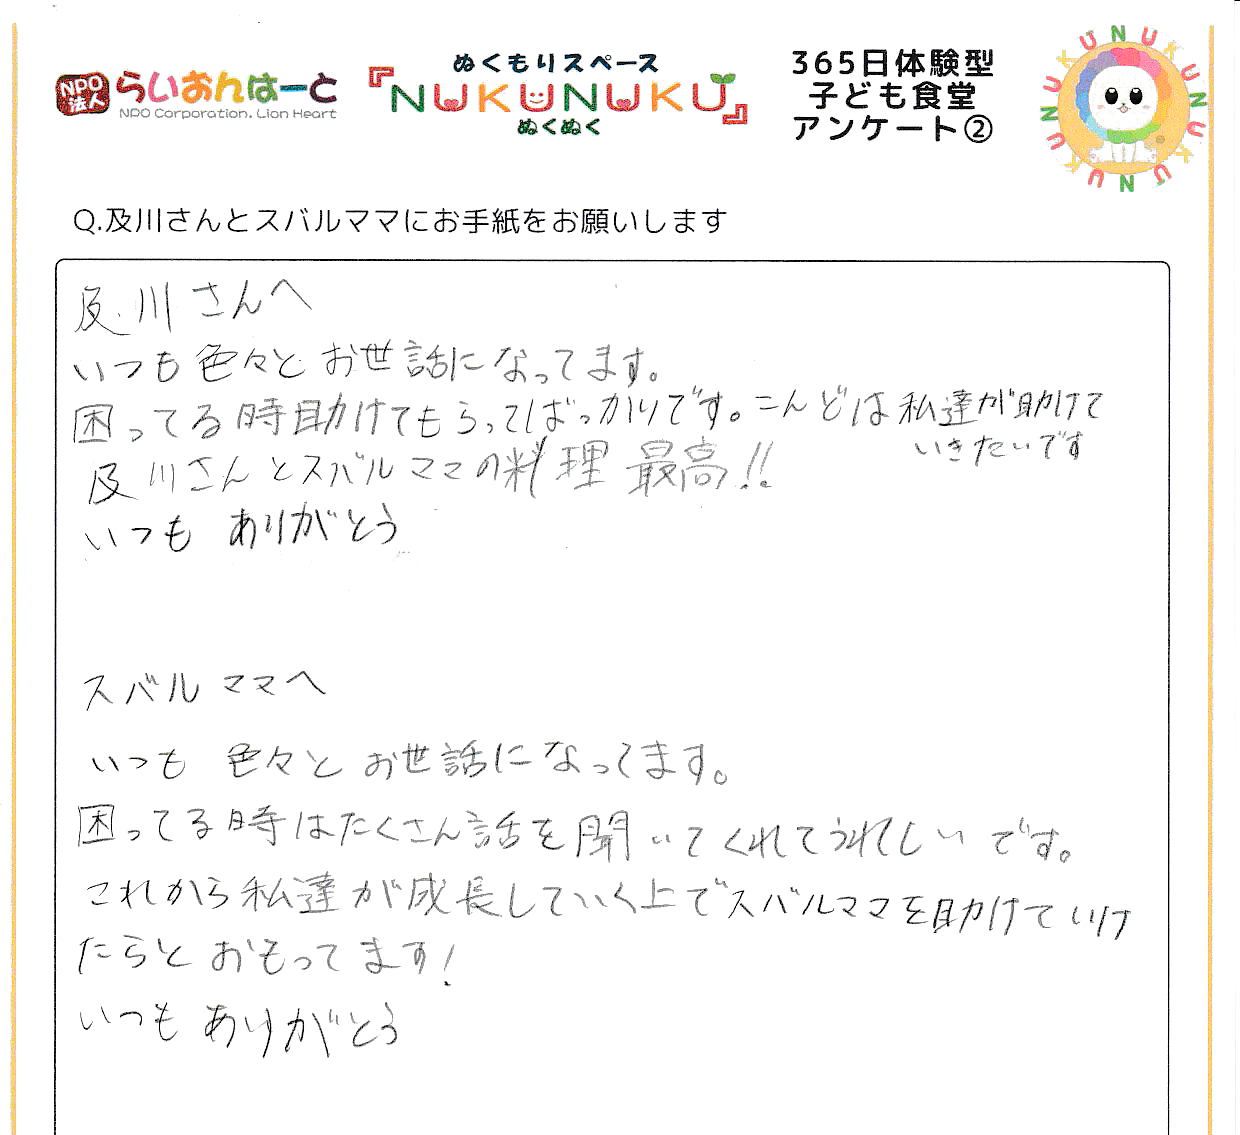 NPO法人 らいおんはーと
NPO Corporation. Lion Heart
ぬくもりスペース
『NUKUNUKU』
ぬくぬく
365日体験型
子ども食堂
アンケート②
NUKUNUKUNUKUNUKU
Q.及川さんとスバルママにお手紙をお願いします
及川さんへ
いつも色々とお世話になってます。
困ってる時助けてもらってばっかりです。こんどは私達が助けて
いきたいです
及川さんとスバルママの料理 最高!!
いつも ありがとう
スバルママへ
いつも 色々とお世話になってます。
困ってる時はたくさん話を聞いてくれてうれしいです。
これから私達が成長していく上でスバルママを助けていけ
たらと おもってます!
いつも ありがとう